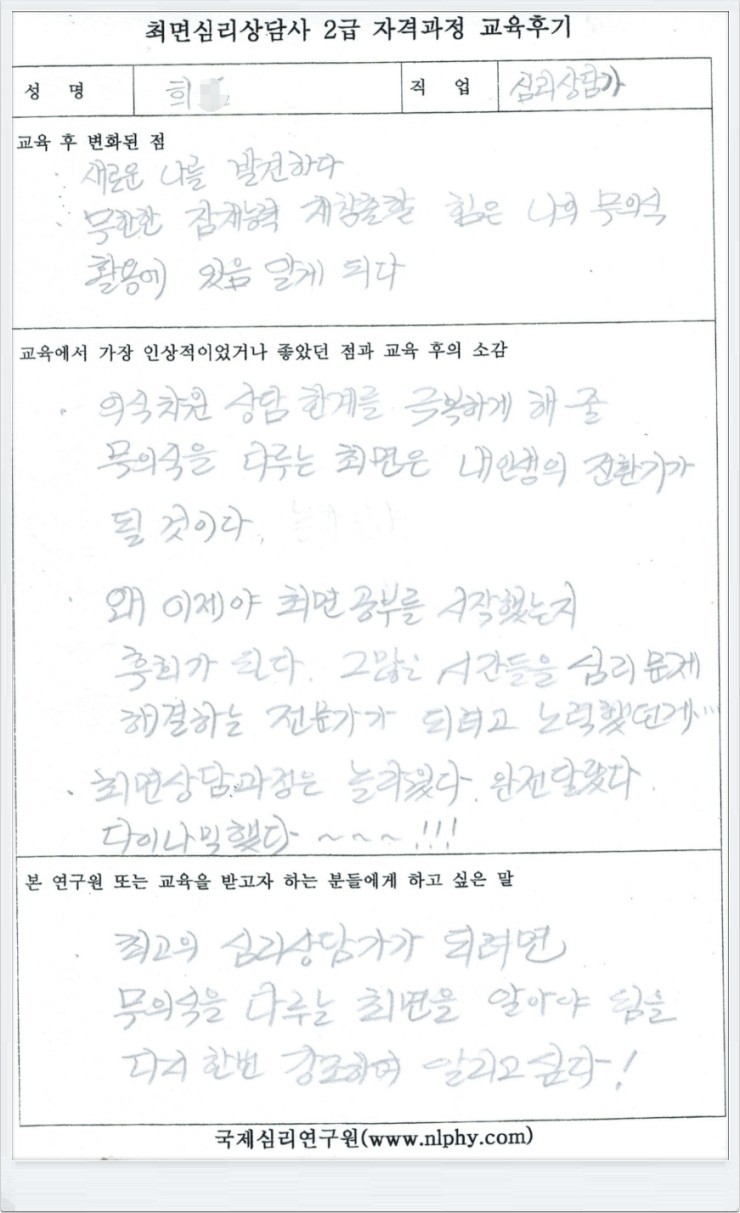 최면심리상담사 2급 자격과정 교육후기
성 명 희 직 업 심리상담가
교육 후 변화된 점
· 새로운 나를 발견하다
· 무한한 잠재능력 재창출할 힘은 나의 무의식
활용에 있음 알게 되다
교육에서 가장 인상적이었거나 좋았던 점과 교육 후의 소감
· 의식차원 상담 한계를 극복하게 해 줄
무의식을 다루는 최면은 내인생의 전환기가
될 것이다.
· 왜 이제야 최면공부를 시작했는지
후회가 된다. 그많은 시간들을 심리문제
해결하는 전문가가 되려고 노력했던게...
· 최면상담과정은 놀라웠다. 완전달랐다.
다이나믹했다~~~~!!!
본 연구원 또는 교육을 받고자 하는 분들에게 하고 싶은 말
· 최고의 심리상담가가 되려면
무의식을 다루는 최면을 알아야 됨을
다시 한번 강조하여 알리고싶다!
국제심리연구원(www.nlphy.com)